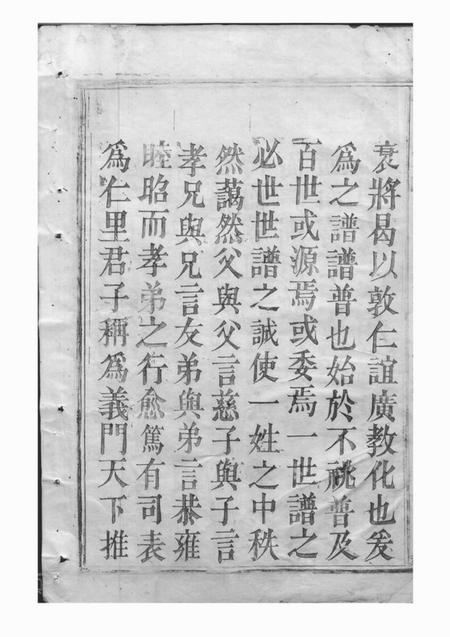 衰將曷以敦仁誼廣教化也爰
為之譜譜普也始於不祧普及
百世或源焉或委焉一世譜之
必世世譜之誠使一姓之中秩
然藹然父與父言慈子與子言
孝兄與兄言友弟與弟言恭雍
睦昭而孝弟之行愈篤有司表
為仁里君子稱為義門天下推